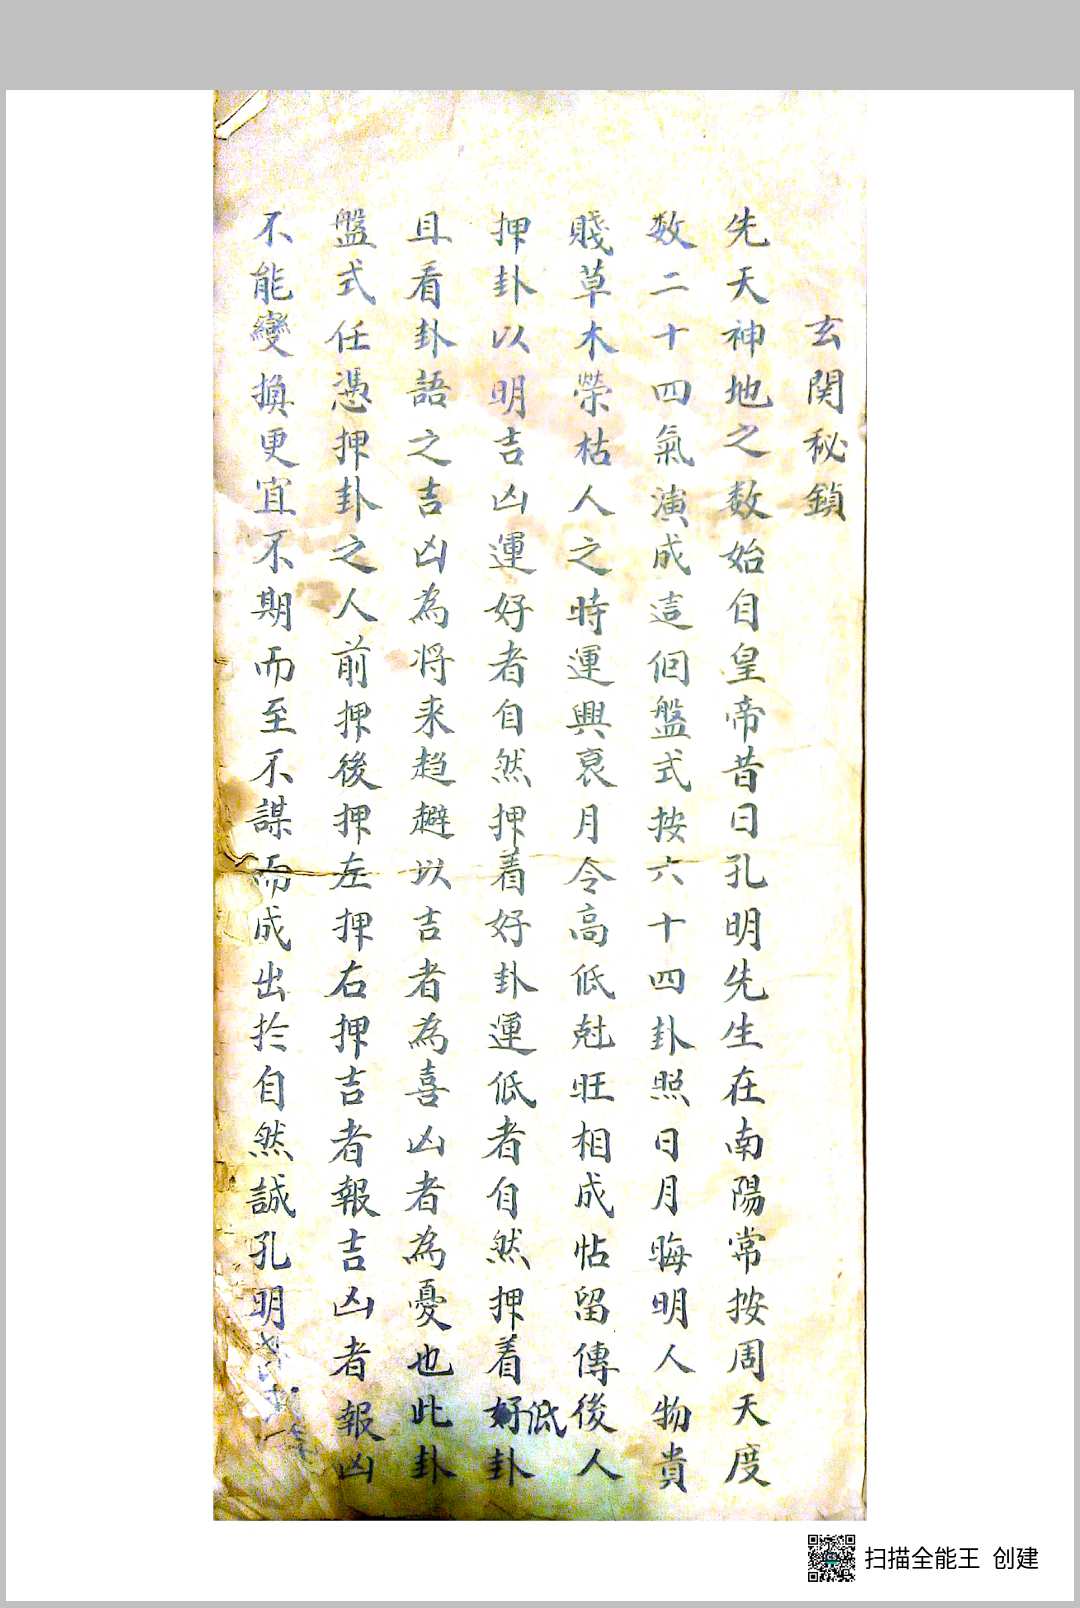 玄関秘鎖
先天神地之数始自皇帝昔日孔明先生在南陽常按周天度
数二十四氣演成這個盤式按六十四卦照日月晦明人物貴
賤草木榮枯人之時運興衰月令高低尅旺相成帖留傳後人
押卦以明吉凶運好者自然押着好卦運低者自然押着好低卦
且看卦語之吉凶為将来趋避以吉者為喜凶者為憂也此卦
盤式任憑押卦之人前押後押左押右押吉者報吉凶者報凶
不能變換更宜不期而至不謀而成出扵自然誠孔明
扫描全能王 创建